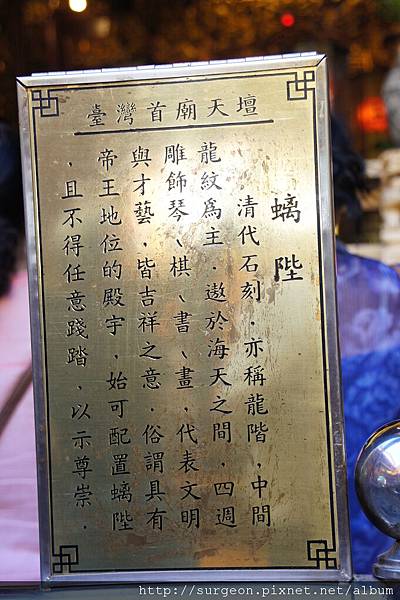 臺灣首廟天壇
螭陛
清代石刻．亦稱龍階，中間
龍紋為主．遨於海天之間．四週
雕飾琴、棋、書、畫，代表文明
與才藝．皆吉祥之意．俗謂具有
帝王地位的殿宇，始可配置螭陛
，且不得任意踐踏，以示尊崇．
http://surgeon.pixnet.net/album